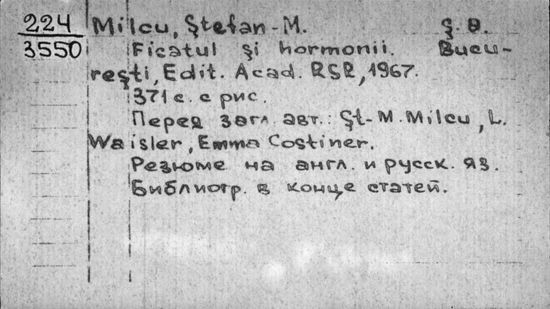 224 Milcu, Ştefan-M. Ş. Ə.
3550 Ficatul şi hormonii. Bucu-
reşti, Edit. Acad. RSR, 1967.
371 с. с рис.
Перед загл. авт.: Şt-M. Milcu, L.
Waisler, Emma Costiner.
Резюме на англ. и русск. яз.
Библиогр. в конце статей.